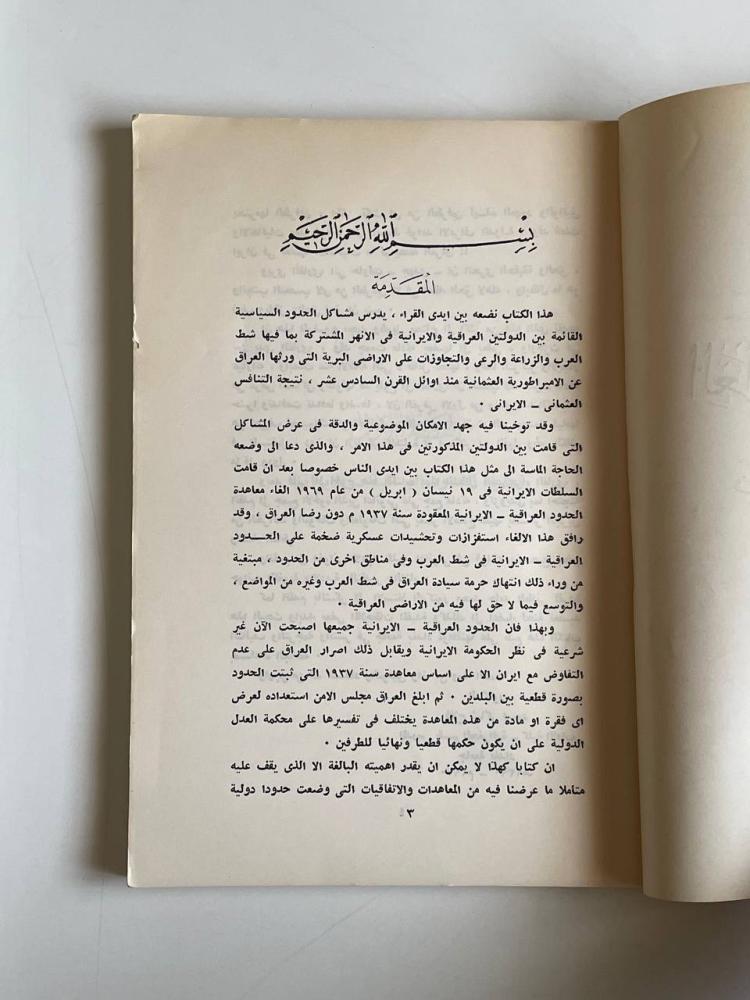 بِسْمِ ٱللَّٰهِ ٱلرَّحْمَٰنِ ٱلرَّحِيمِ
المقدمة
هذا الكتاب نضعه بين ايدى القراء ، يدرس مشاكل الحدود السياسية
القائمة بين الدولتين العراقية والايرانية فى الانهر المشتركة بما فيها شط
العرب والزراعة والرعى والتجاوزات على الاراضى البرية التى ورثها العراق
عن الامبراطورية العثمانية منذ اوائل القرن السادس عشر ، نتيجة التنافس
العثمانى ــ الايرانى ٠
وقد توخينا فيه جهد الامكان الموضوعية والدقة فى عرض المشاكل
التى قامت بين الدولتين المذكورتين فى هذا الامر ، والذى دعا الى وضعه
الحاجة الماسة الى مثل هذا الكتاب بين ايدى الناس خصوصا بعد ان قامت
السلطات الايرانية فى ١٩ نيسان ( ابريل ) من عام ١٩٦٩ الغاء معاهدة
الحدود العراقية ــ الايرانية المعقودة سنة ١٩٣٧ م دون رضا العراق ، وقد
رافق هذا الالغاء استفزازات وتحشيدات عسكرية ضخمة على الحـــدود
العراقية ــ الايرانية فى شط العرب وفى مناطق اخرى من الحدود ، مبتغية
من وراء ذلك انتهاك حرمة سيادة العراق فى شط العرب وغيره من المواضع ،
والتوسع فيما لا حق لها فيه من الاراضى العراقية ٠
وبهذا فان الحدود العراقية ــ الايرانية جميعها اصبحت الآن غير
شرعية فى نظر الحكومة الايرانية ويقابل ذلك اصرار العراق على عدم
التفاوض مع ايران الا على اساس معاهدة سنة ١٩٣٧ التى ثبتت الحدود
بصورة قطعية بين البلدين ٠ ثم ابلغ العراق مجلس الامن استعداده لعرض
اى فقرة او مادة من هذه المعاهدة يختلف فى تفسيرها على محكمة العدل
الدولية على ان يكون حكمها قطعيا ونهائيا للطرفين ٠
ان كتابا كهذا لا يمكن ان يقدر اهميته البالغة الا الذى يقف عليه
متأملا ما عرضنا فيه من المعاهدات والاتفاقيات التى وضعت حدودا دولية
٣